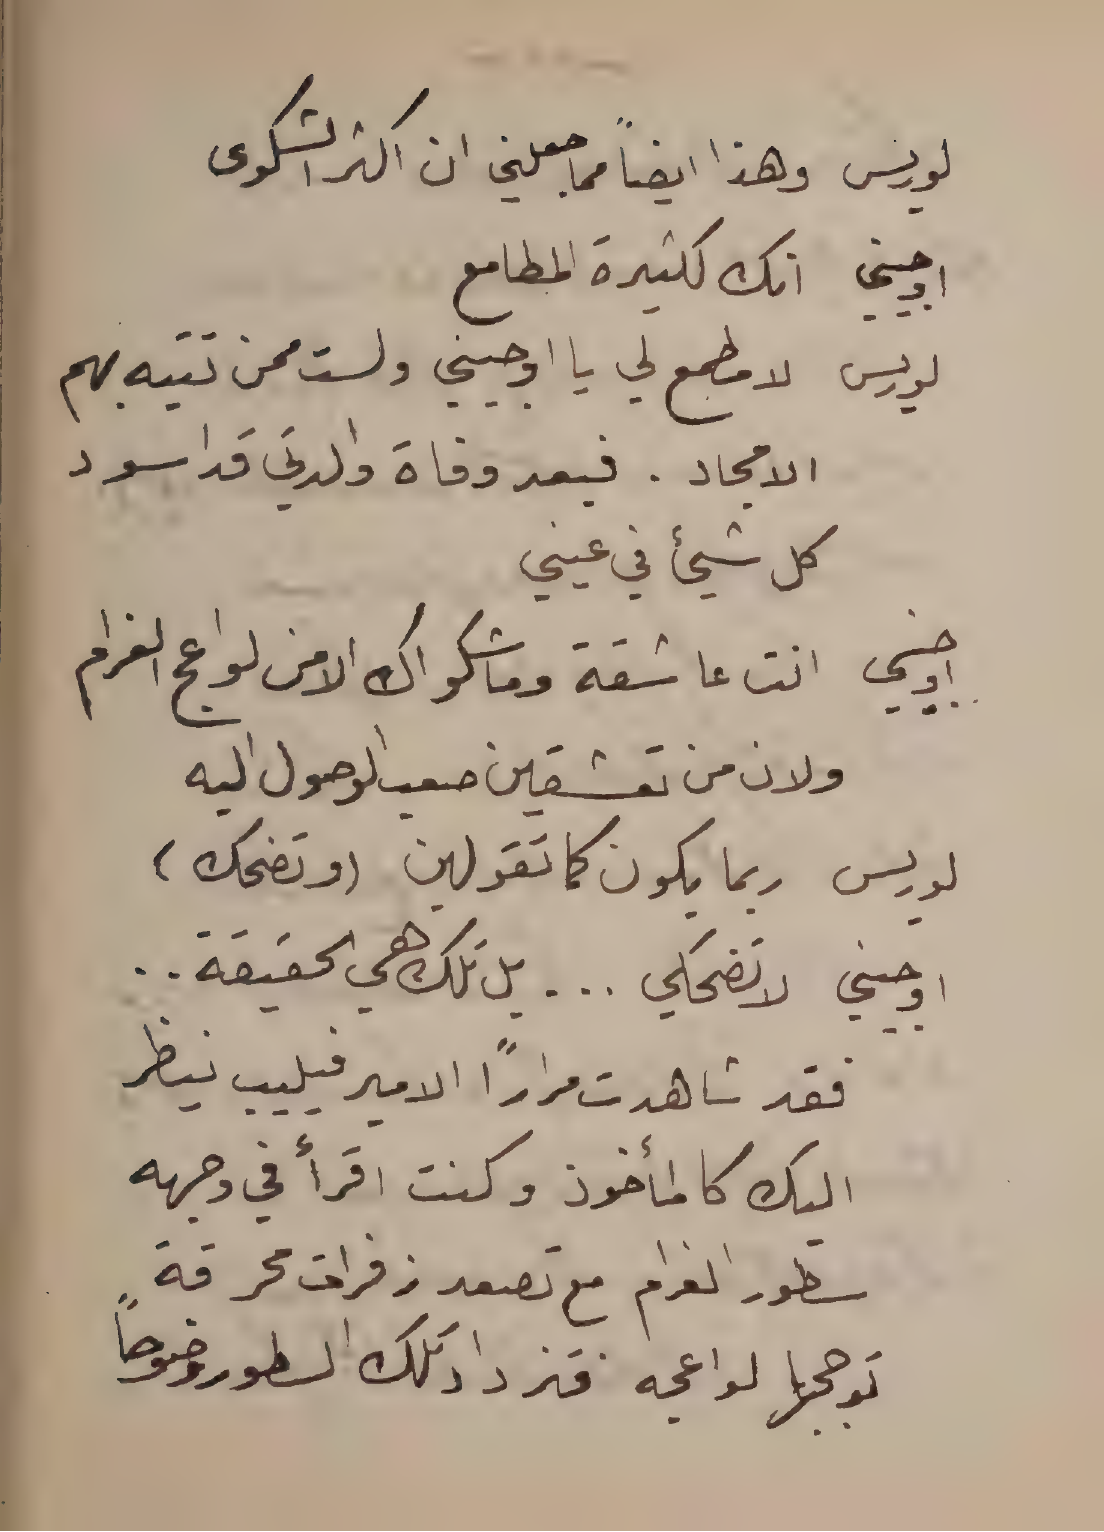 لويس وهذا ايضاً مما جعلني ان اكثر الشكوى
اوجيني انك لكثيرة المطامع
لويس لا مطمع لي يا اوجيني ولست ممن تتيه بهم
الامجاد . فبعد وفاة والدتي قد اسود
كل شيئ في عيني
اوجيني انت عاشقة وما شكواك الا من لواعج الغرام
ولان من تعشقين صعب الوصول اليه
لويس ربما يكون كما تقولين (وتضحك)
اوجيني لا تضحكي .... بل تلك هي الحقيقة ..
فقد شاهدت مراراً الامير فيليب ينظر
اليك كالمأخوذ وكنت اقرأ في وجهه
سطور الغرام مع تصعد زفرات محرقة
توججها لواعجه فتزداد تلك السطور وضوحاً